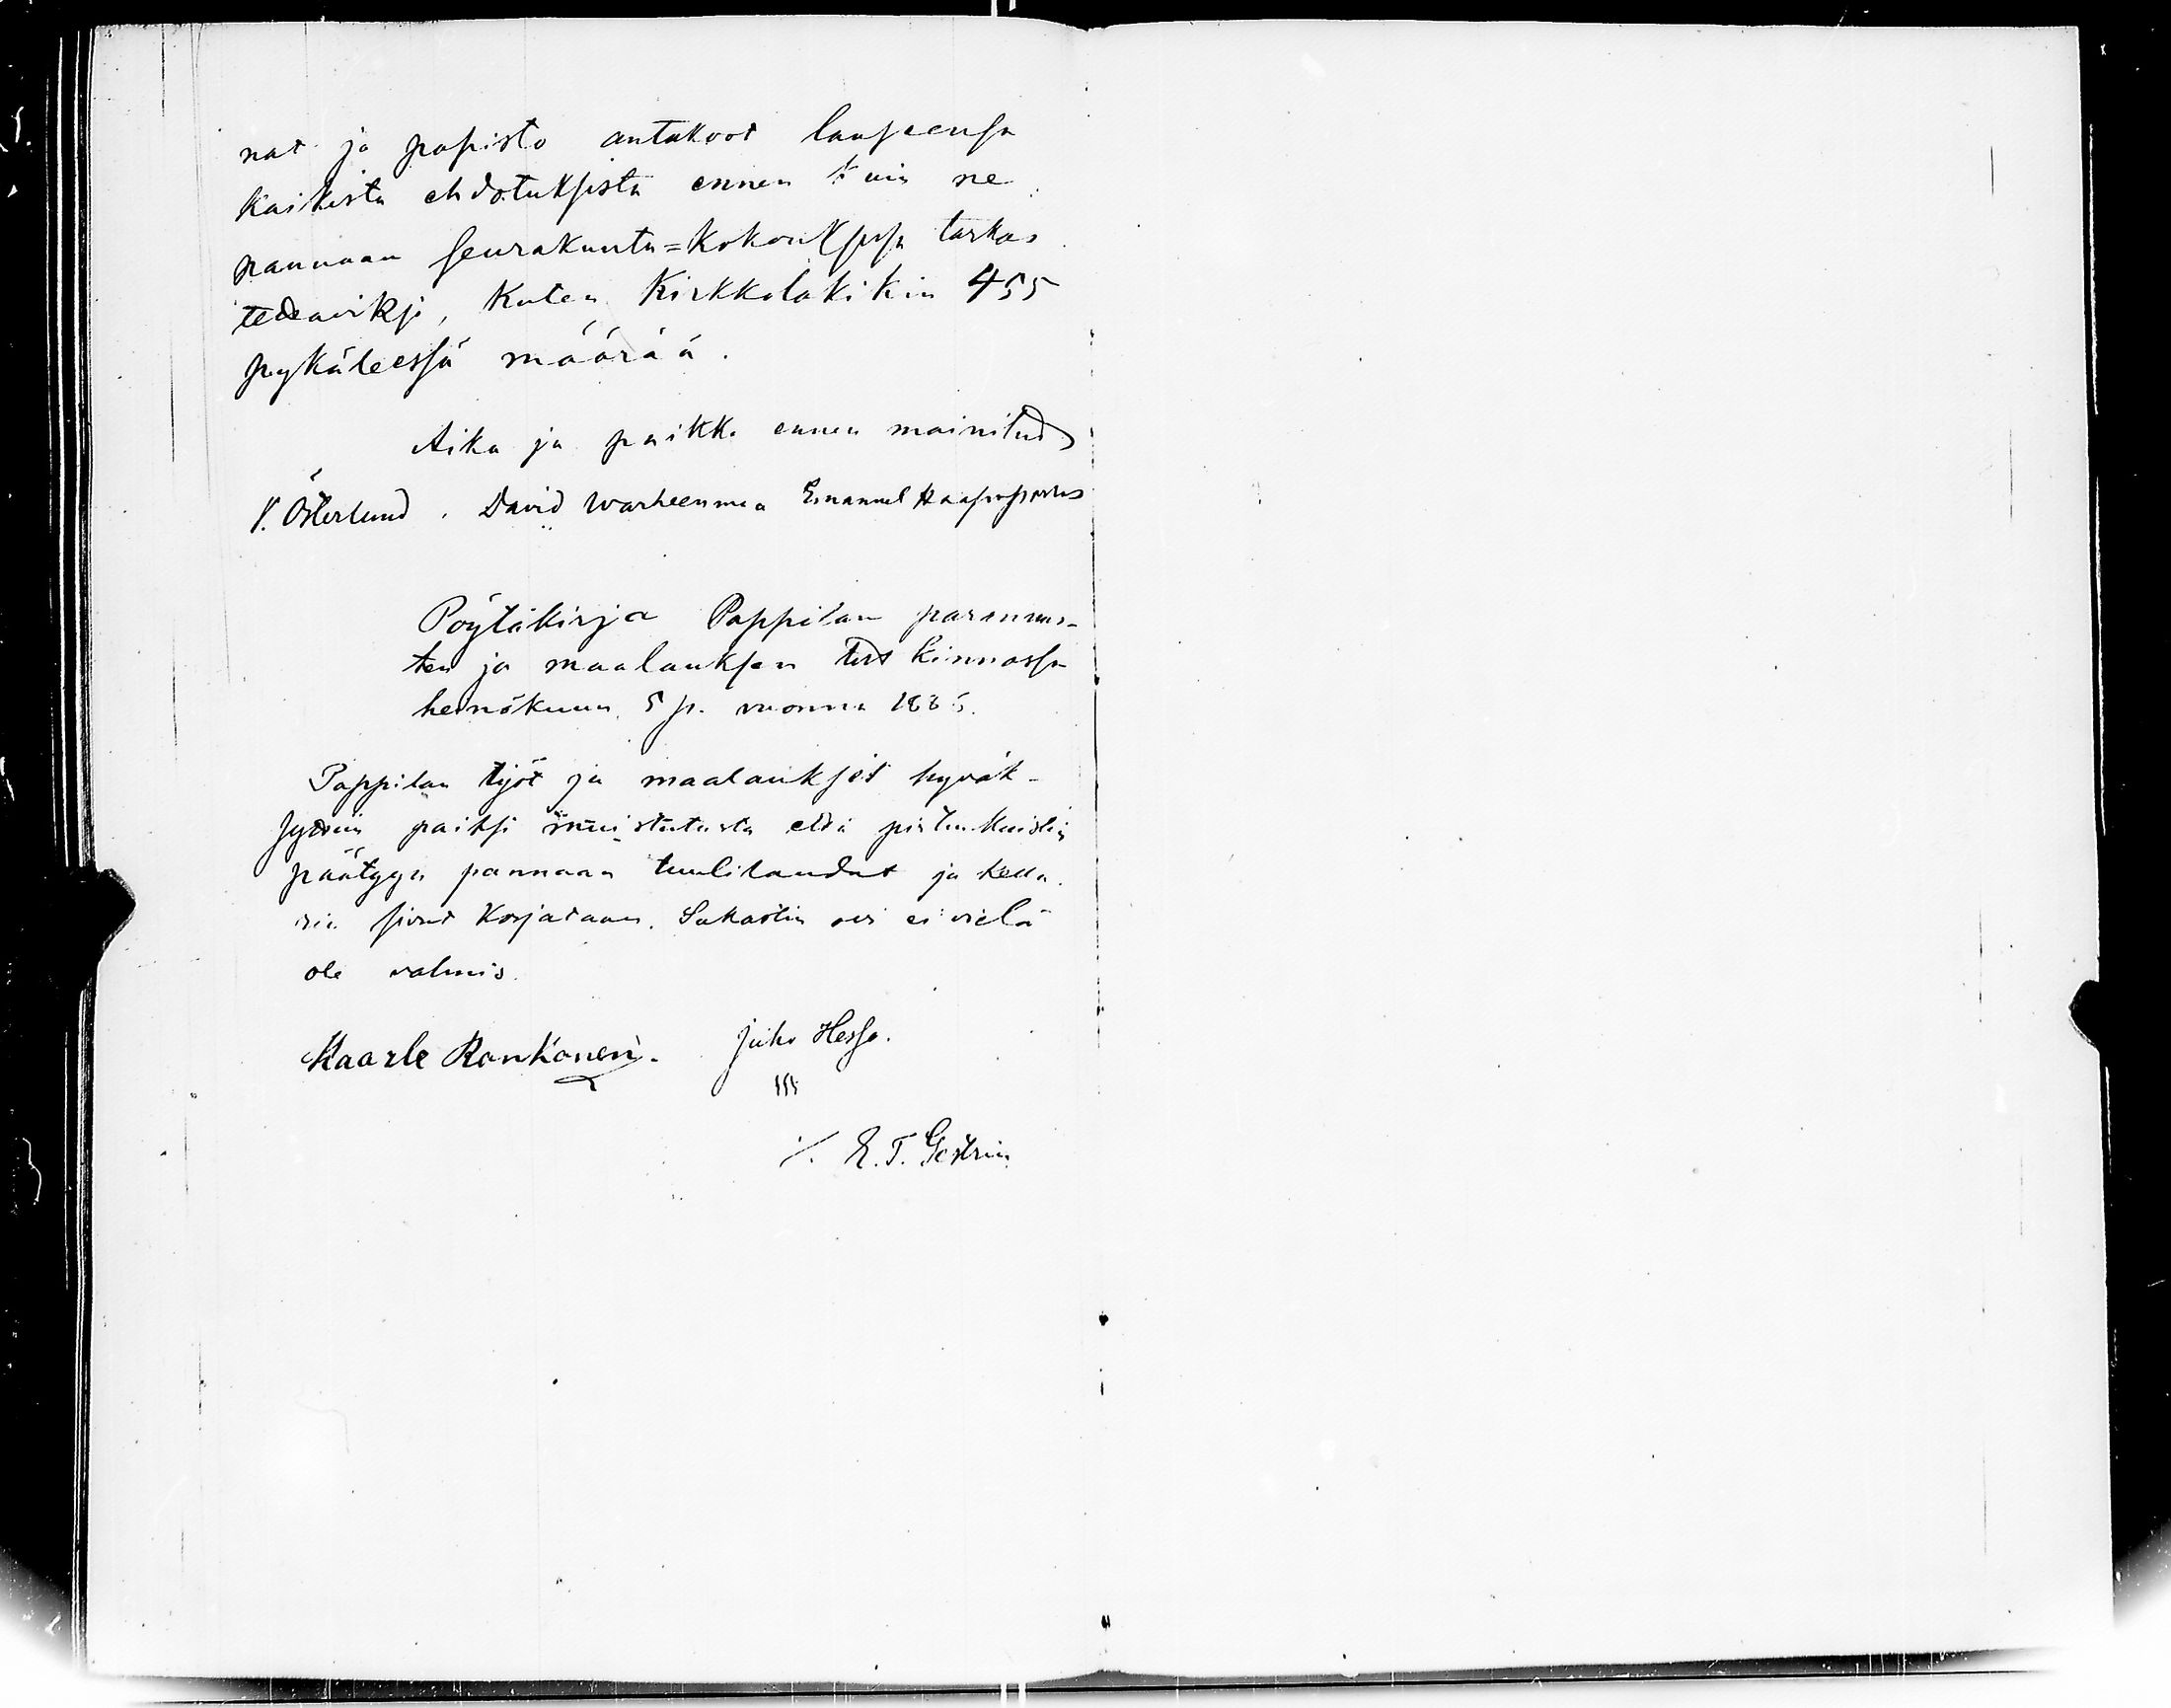 nat ja papisto antakoot lauseensa
kaikista ehdotuksista ennen kuin ne
pannaan seurakunta=kokouksessa tarkas
tedtaviksi, kuten Kirkkolakikin 455
pykäleessä määrää.
Aika ja paikka ennen mainitud
V. Österlund. David Warheenmaa Emanuel
Pöytäkirja Pappilan parannus-
ten ja maalauksen tutkinnossa
heinäkuun 5 p. vuonna 1885.
Pappilan työt ja maalaukset hyväk-
sydtiin paitsi muistutusta että kuistin
päätyyn pannaan tuulilaudat ja kella-
rin sivut korjataan. Sakastin ovi ei vielä
ole valmis.
Kaarle Ronkanen. Juho Hessa.
E. T. Gestrin